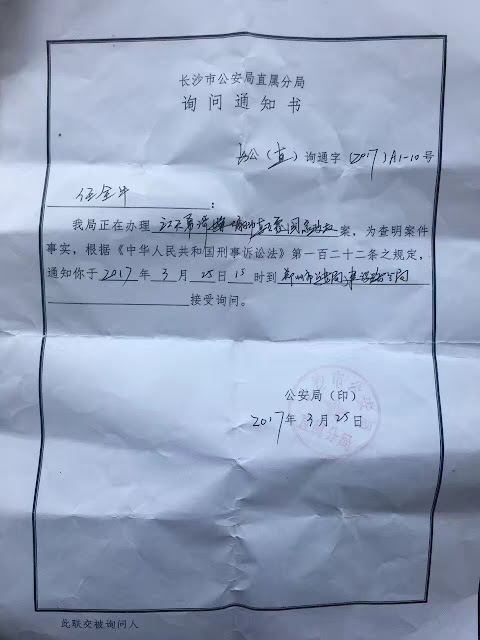 长沙市公安局直属分局
询问通知书
长公（直）询通字〔2017〕A1-10号
任全牛：
我局正在办理江天勇涉嫌煽动颠覆国家政权案，为查明案件
事实，根据《中华人民共和国刑事诉讼法》第一百二十二条之规定，
通知你于2017年3月25日15时到郑州市公安局建设路分局
接受询问。
公安局（印）
2017年3月25日
此联交被询问人